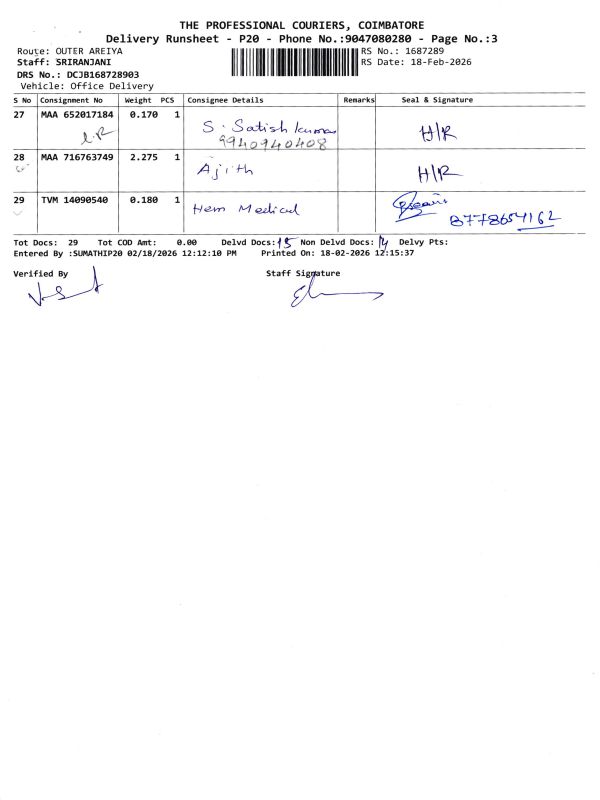 THE PROFESSIONAL COURIERS, COIMBATORE
Delivery Runsheet - P20 - Phone No.:9047080280 - Page No.:3
Route: OUTER AREIYA RS No.: 1687289
Staff: SRIRANJANI RS Date: 18-Feb-2026
DRS No.: DCJB168728903
Vehicle: Office Delivery
S No Consignment No Weight PCS Consignee Details Remarks Seal & Signature
27 MAA 652017184 0.170 1 S. Satish kumar H/R
9940940408
28 MAA 716763749 2.275 1 Ajith H/R
29 TVM 14090540 0.180 1 Hem Medical
8778654162
Tot Docs: 29 Tot COD Amt: 0.00 Delvd Docs: 15 Non Delvd Docs: 14 Delvy Pts:
Entered By :SUMATHIP20 02/18/2026 12:12:10 PM Printed On: 18-02-2026 12:15:37
Verified By Staff Signature